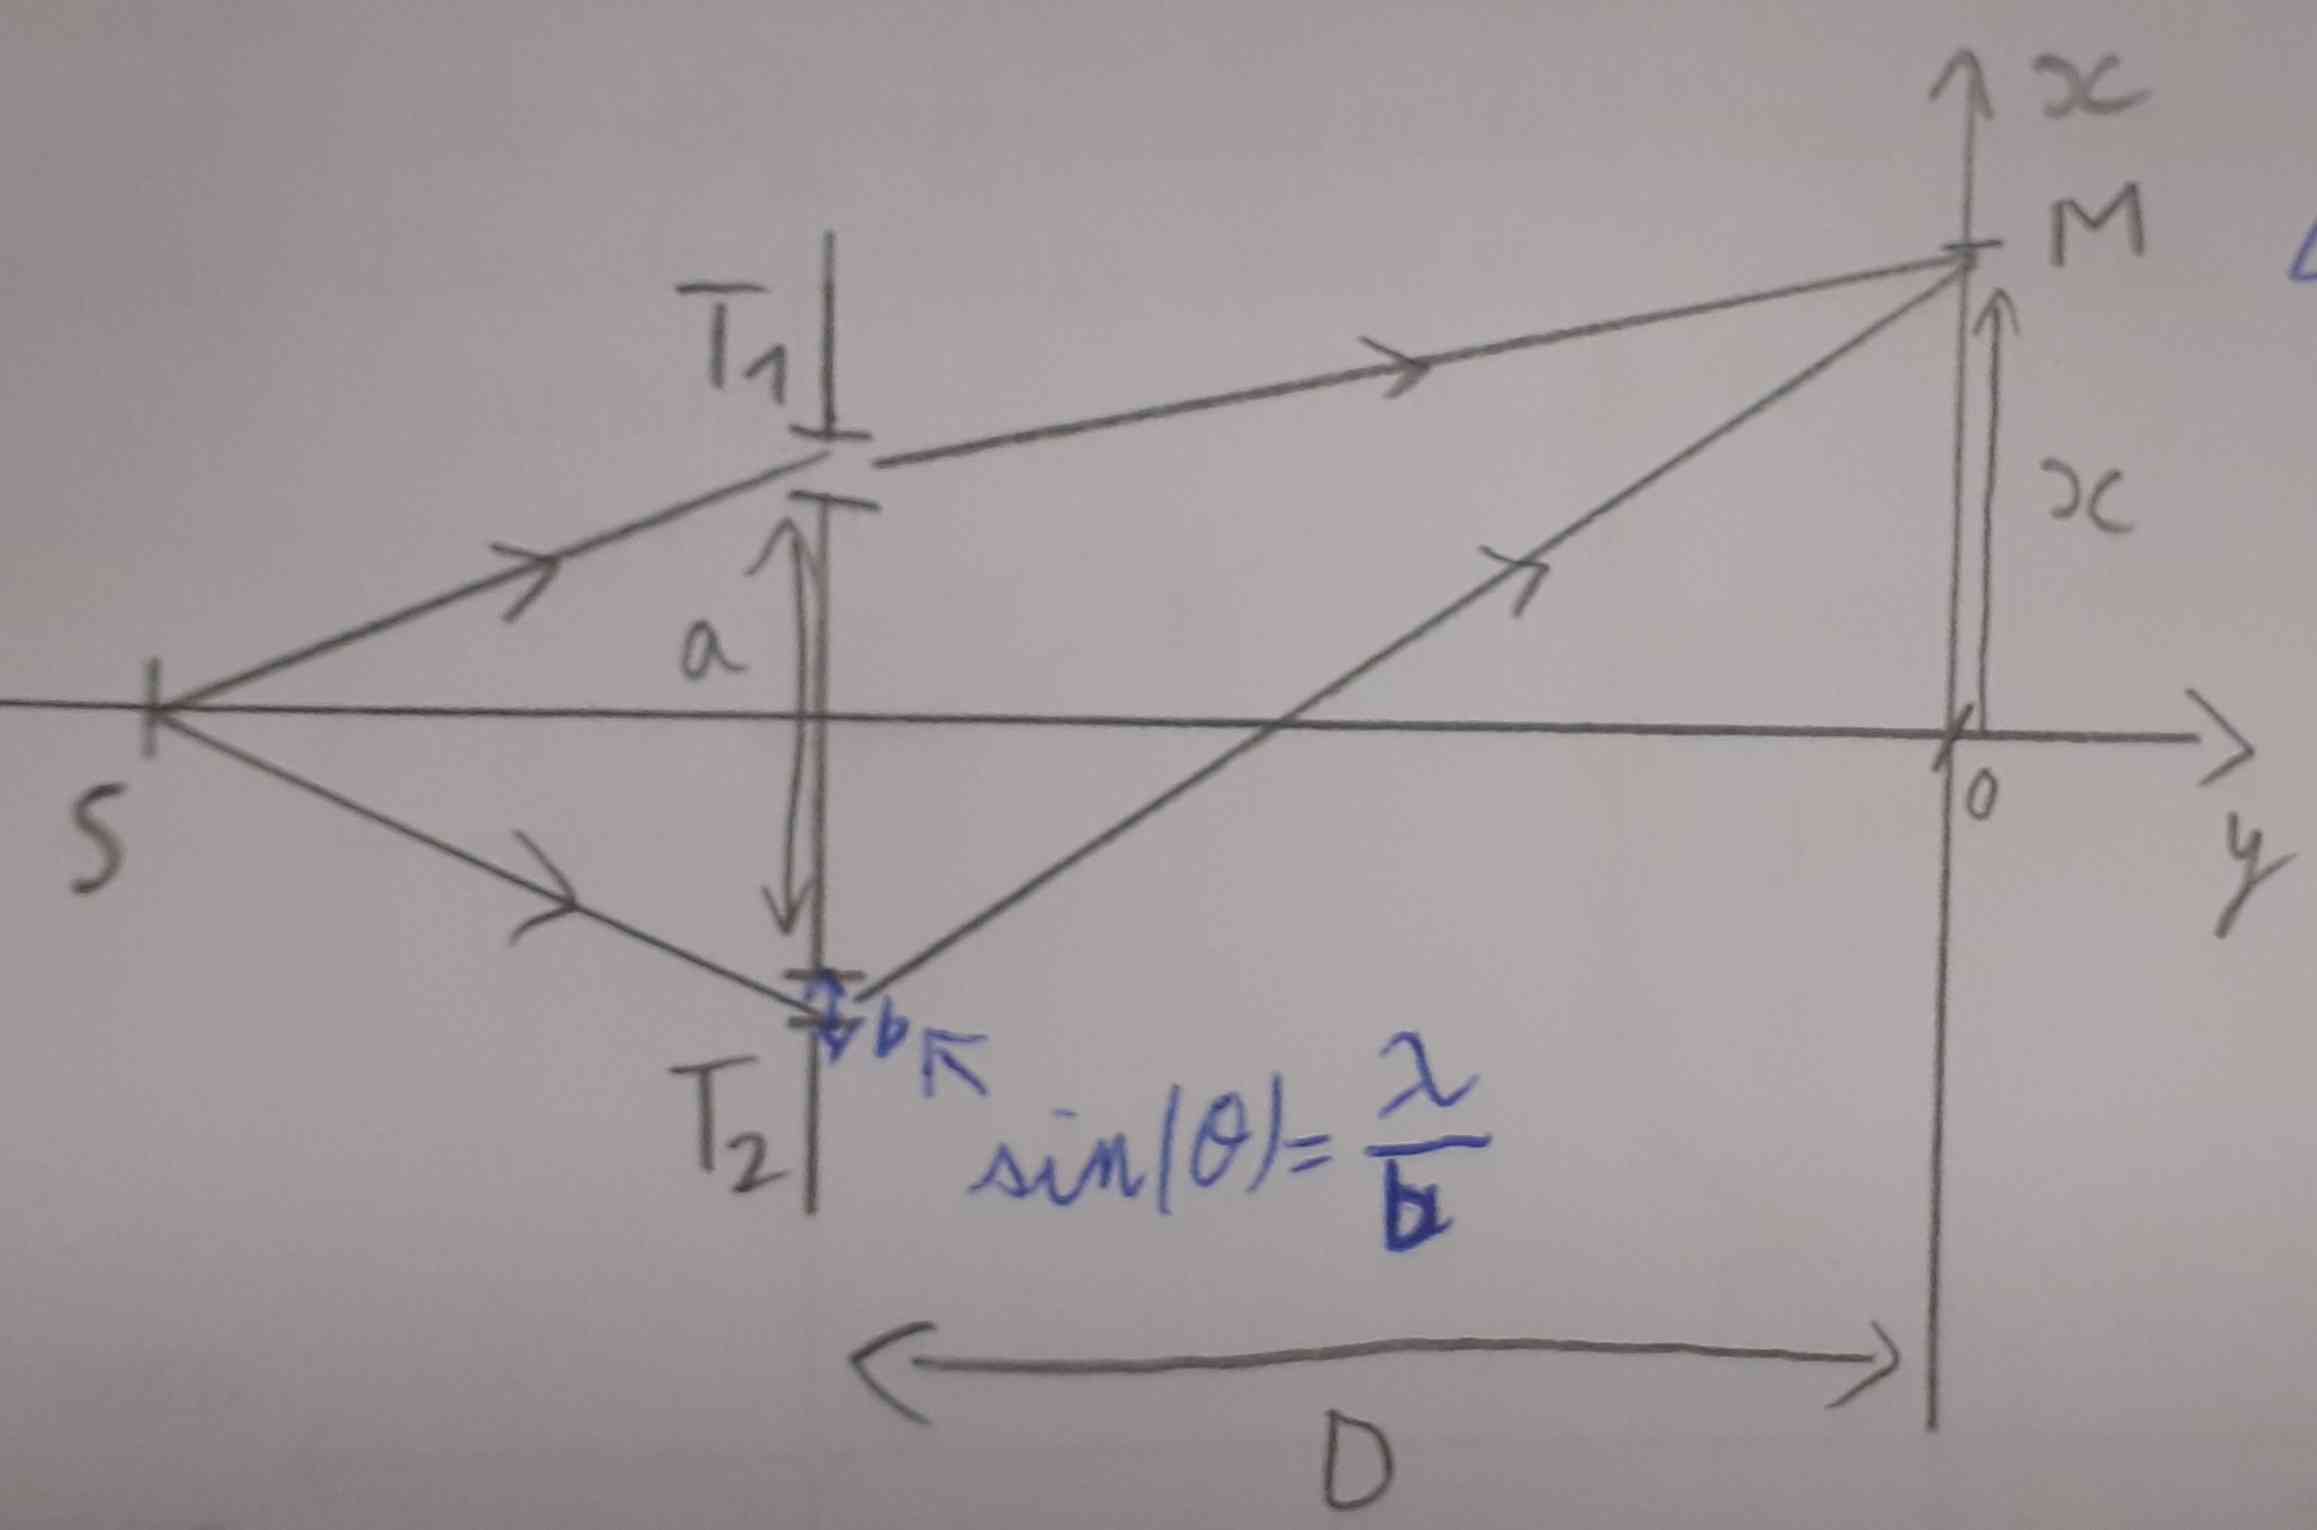 x
M
T1
x
a
S
0
y
b
T2
sin(θ)= λ/b
D